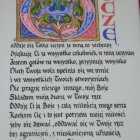 CZE
oddaję się Tobie uczyń ze mną co zechcesz
Dziękuję Ci za wszystko cokolwiek ze mną uczynisz
Jestem gotów na wszystko, przyjmuję wszystko
Niech Twoja wola spełnia się we mnie
i we wszystkich Twoich stworzeniach
Nie pragnę niczego innego, mój Boże
Składam moją duszę w Twoje ręce
Oddaję Ci ją Boże z całą miłością mego serca
Kocham Cię i to jest potrzebą mojej miłości
by się oddać, by się złożyć w Twoje ręce
bez ograniczeń
z nieskończoną ufnością